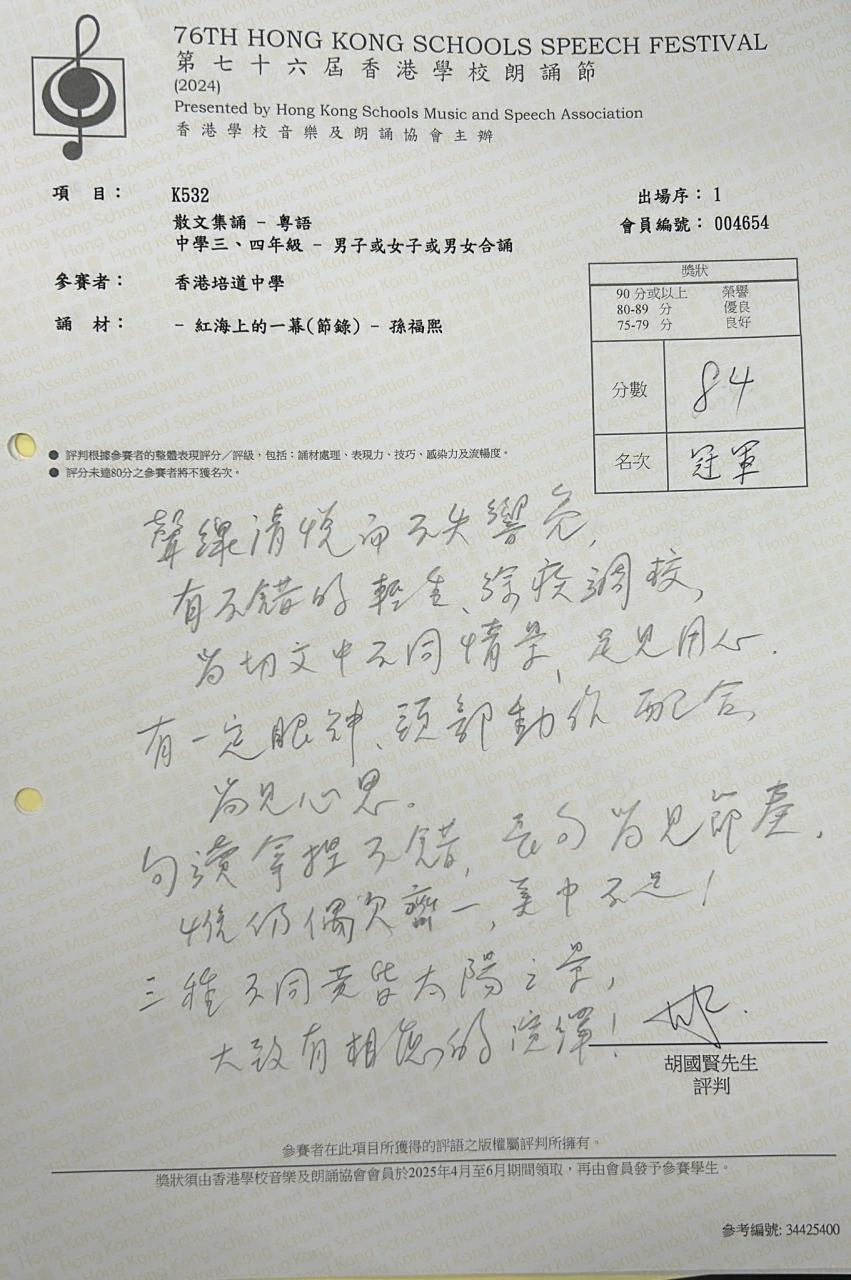 76TH HONG KONG SCHOOLS SPEECH FESTIVAL
第七十六屆香港學校朗誦節
(2024)
Presented by Hong Kong Schools Music and Speech Association
香港學校音樂及朗誦協會主辦
項 目： K532 出場序： 1
散文集誦 - 粵語 會員編號： 004654
中學三、四年級 - 男子或女子或男女合誦
參賽者： 香港培道中學
誦 材： - 紅海上的一幕(節錄) - 孫福熙
獎狀
90 分或以上 榮譽
80-89 分 優良
75-79 分 良好
分數 84
名次 冠軍
● 評判根據參賽者的整體表現評分／評級，包括：誦材處理、表現力、技巧、感染力及流暢度。
● 評分未達80分之參賽者將不獲名次。
聲線清悅而不失響亮，
有不錯的輕重、徐疾調校，
尚切文中不同情景，足見用心．
有一定眼神、頭部動作配合，
尚見心思。
句讀拿捏不錯，長句尚見節奏，
惟仍偶欠齊一，美中不足！
三種不同竟皆太陽之景，
大致有相應的演繹！
胡國賢先生
評判
參賽者在此項目所獲得的評語之版權屬評判所擁有。
獎狀須由香港學校音樂及朗誦協會會員於2025年4月至6月期間領取，再由會員發予參賽學生。
參考編號: 34425400